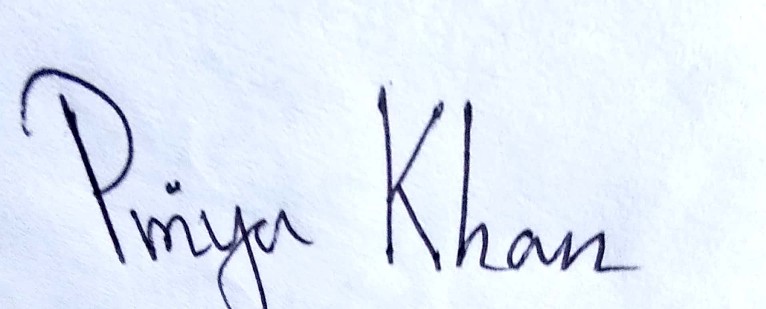 Priya Khan